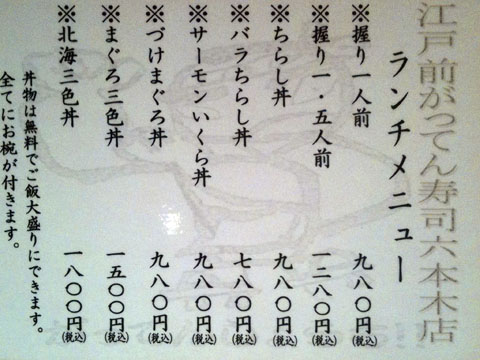 江戸前がってん寿司六本木店
ランチメニュー
※握り一人前 九八〇円(税込)
※握り一・五人前 一二八〇円(税込)
※ちらし丼 九八〇円(税込)
※バラちらし丼 七八〇円(税込)
※サーモンいくら丼 九八〇円(税込)
※づけまぐろ丼 九八〇円(税込)
※まぐろ三色丼 一五〇〇円(税込)
※北海三色丼 一八〇〇円(税込)
丼物は無料でご飯大盛りにできます。
全てにお椀が付きます。